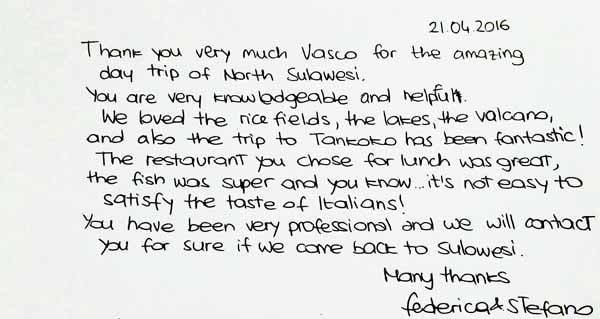 21.04.2016
Thank you very much Vasco for the amazing
day trip of North Sulawesi.
You are very knowledgeable and helpfull.
We loved the rice fields, the lakes, the valcano,
and also the trip to Tankoko has been fantastic!
The restaurant you chose for lunch was great,
the fish was super and you know...it's not easy to
satisfy the taste of Italians!
You have been very professional and we will contact
you for sure if we come back to Sulawesi.
Many thanks
Federica & Stefano